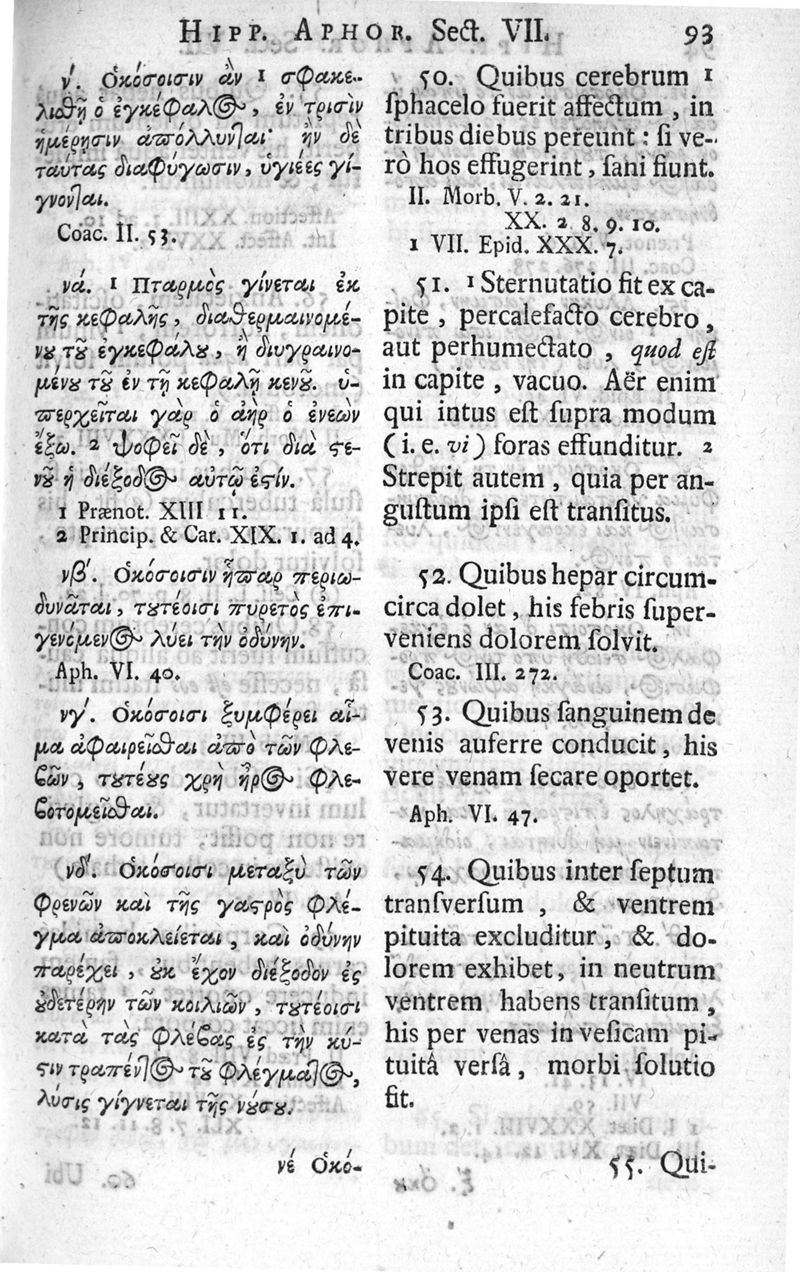 HIPP. APHOR. Sect. VII. 93
ν΄. Ὁκόσοισιν ἂν 1 σφακε-
λισθῇ ὁ ἐγκέφαλος, ἐν τρισὶν
ἡμέρῃσιν ἀπόλλυνται· ἢν δὲ
ταύτας διαφύγωσιν, ὑγιέες γί-
γνονται.
Coac. II. 53.
να΄. 1 Πταρμὸς γίνεται ἐκ
τῆς κεφαλῆς, διαθερμαινομέ-
νου τοῦ ἐγκεφάλου, ἢ διυγραινο-
μένου τοῦ ἐν τῇ κεφαλῇ κενοῦ. ὑ-
περχεῖται γὰρ ὁ ἀὴρ ὁ ἐνεὼν
ἔξω. 2 ψοφεῖ δὲ, ὅτι διὰ στε-
νοῦ ἡ διέξοδος αὐτῷ ἐστίν.
1 Prænot. XIII 11.
2 Princip. & Car. XIX. 1. ad 4.
νβ΄. Ὁκόσοισιν ἧπαρ περιω-
δυνᾶται, τουτέοισι πυρετὸς ἐπι-
γενόμενος λύει τὴν ὀδύνην.
Aph. VI. 40.
νγ΄. Ὁκόσοισι ξυμφέρει αἷ-
μα ἀφαιρεῖσθαι ἀπὸ τῶν φλε-
βῶν, τουτέους χρὴ ἦρος φλε-
βοτομεῖσθαι.
νδ΄. Ὁκόσοισι μεταξὺ τῶν
φρενῶν καὶ τῆς γαστρὸς φλέ-
γμα ἀποκλείεται, καὶ ὀδύνην
παρέχει, οὐκ ἔχον διέξοδον ἐς
οὐδετέρην τῶν κοιλιῶν, τουτέοισι
κατὰ τὰς φλέβας ἐς τὴν κύ-
στιν τραπέντος τοῦ φλέγματος,
λύσις γίγνεται τῆς νούσου.
νέ Ὁκό-
50. Quibus cerebrum 1
ſphacelo fuerit affectum, in
tribus diebus pereunt: ſi ve-
rò hos effugerint, ſani fiunt.
II. Morb. V. 2. 21.
XX. 2 8. 9. 10.
1 VII. Epid. XXX. 7.
51. 1 Sternutatio fit ex ca-
pite, percalefacto cerebro,
aut perhumectato, quod eſt
in capite, vacuo. Aër enim
qui intus eſt ſupra modum
(i. e. vi) foras effunditur. 2
Strepit autem, quia per an-
guſtum ipſi eſt tranſitus.
52. Quibus hepar circum-
circa dolet, his febris ſuper-
veniens dolorem ſolvit.
Coac. III. 272.
53. Quibus ſanguinem de
venis auferre conducit, his
vere venam ſecare oportet.
Aph. VI. 47.
54. Quibus inter ſeptum
tranſverſum, & ventrem
pituita excluditur, & do-
lorem exhibet, in neutrum
ventrem habens tranſitum,
his per venas in veſicam pi-
tuitâ verſâ, morbi ſolutio
fit.
55. Qui-